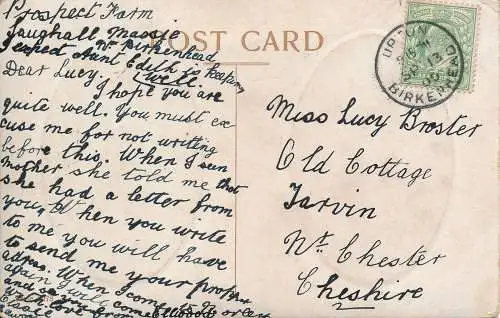 Prospect Farm
Saughall Massie
Nr. Birkenhead
expect Aunt Edith is keeping
well.
POST CARD
Dear Lucy,
I hope you are
quite well. You must ex
cuse me for not writing
before this. When I seen
Mother she told me that
she had a letter from
you, When you write
to me you will have
to send me your proper
adres. When I come
again I will come
with love from
Elsie
UPTON
BIRKENHEAD
Miss Lucy Broster
Old Cottage
Tarvin
Nt. Chester
Cheshire